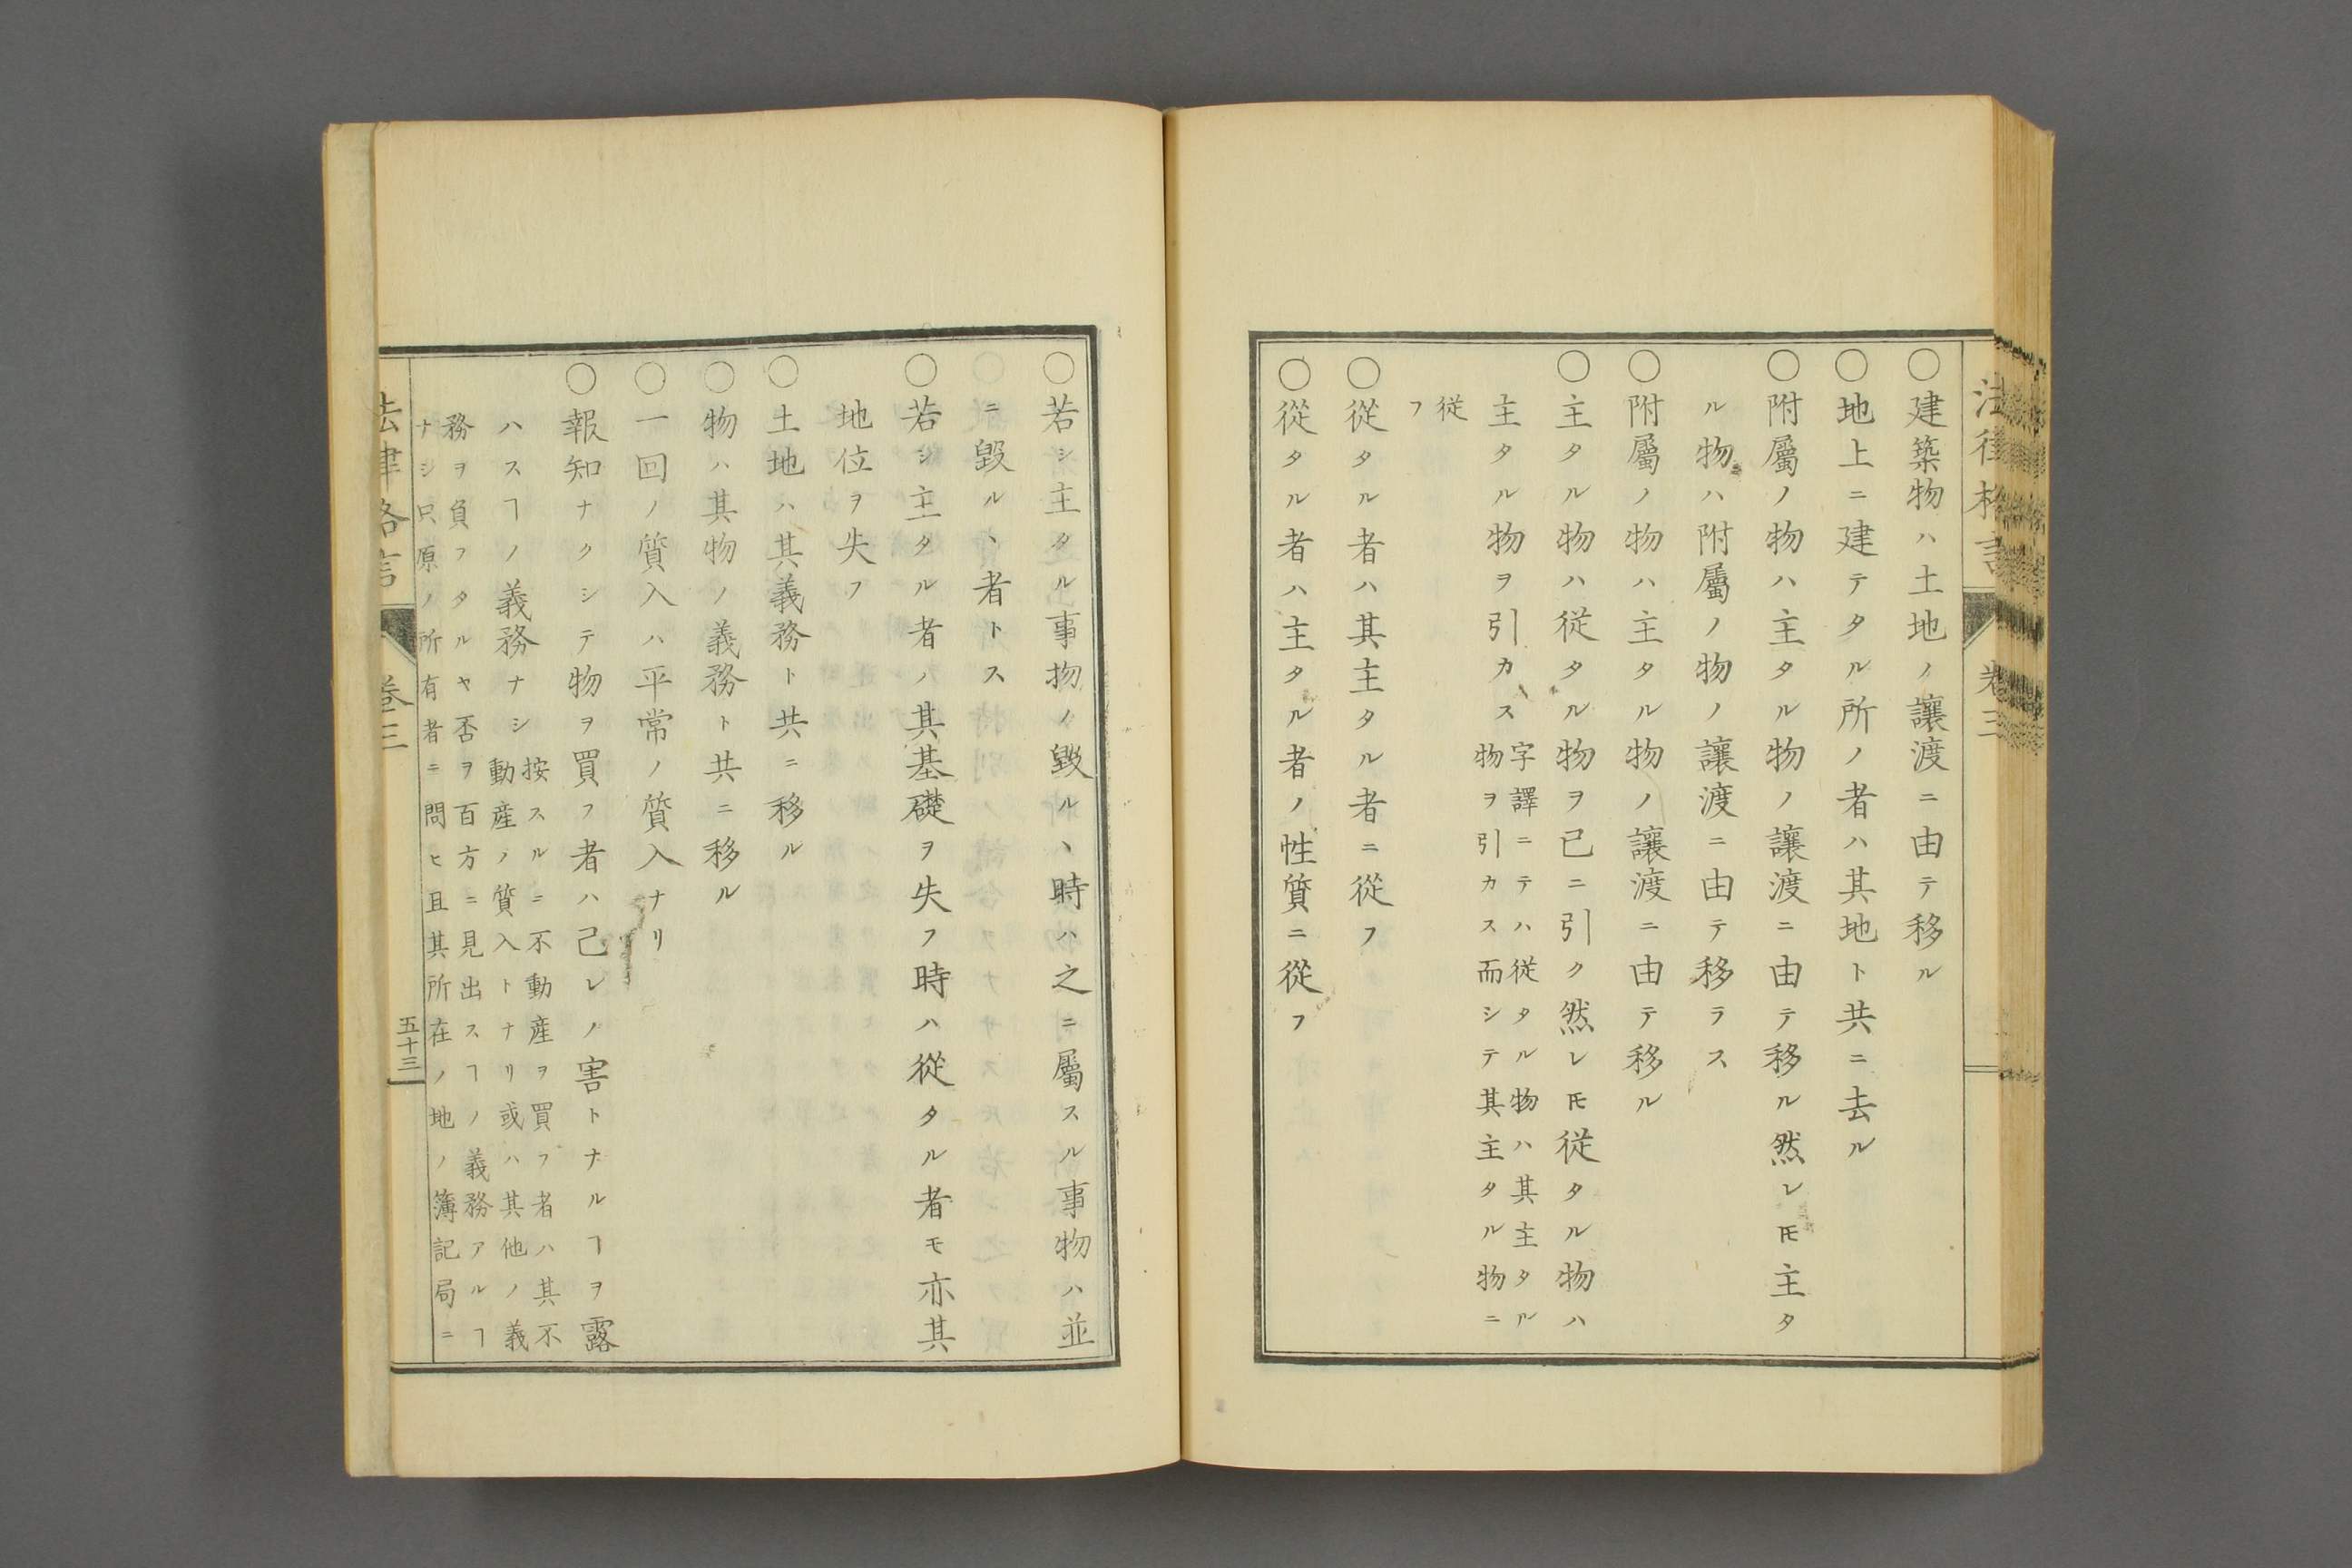 法律格言
卷三
○建築物ハ土地ノ讓渡ニ由テ移ル
○地上ニ建テタル所ノ者ハ其地ト共ニ去ル
○附屬ノ物ハ主タル物ノ讓渡ニ由テ移ル然レ𪜈主タ
ル物ハ附屬ノ物ノ讓渡ニ由テ移ラス
○附屬ノ物ハ主タル物ノ讓渡ニ由テ移ル
○主タル物ハ従タル物ヲ已ニ引ク然レ𪜈従タル物ハ
主タル物ヲ引カス
字譯ニテハ従タル物ハ其主タル
物ヲ引カス而シテ其主タル物ニ
従
フ
○従タル者ハ其主タル者ニ従フ
○従タル者ハ主タル者ノ性質ニ従フ
○若シ主タル事物ノ毀ル丶時ハ之ニ屬スル事物ハ並
ニ毀ル丶者トス
○若シ主タル者ノ其基礎ヲ失フ時ハ從タル者モ亦其
地位ヲ失フ
○土地ハ其義務ト共ニ移ル
○物ハ其物ノ義務ト共ニ移ル
○一回ノ質入ハ平常ノ質入ナリ
○報知ナクシテ物ヲ買フ者ハ己レノ害トナルヿヲ露
ハスヿノ義務ナシ
按スルニ不動産ヲ買フ者ハ其不
動産ノ質入トナリ或ハ其他ノ義
務ヲ負フタルヤ否ヲ百方ニ見出スヿノ義務アルヿ
ナシ只原ノ所有者ニ問ヒ且其所在ノ地ノ簿記局ニ
法律格言
卷三
五十三